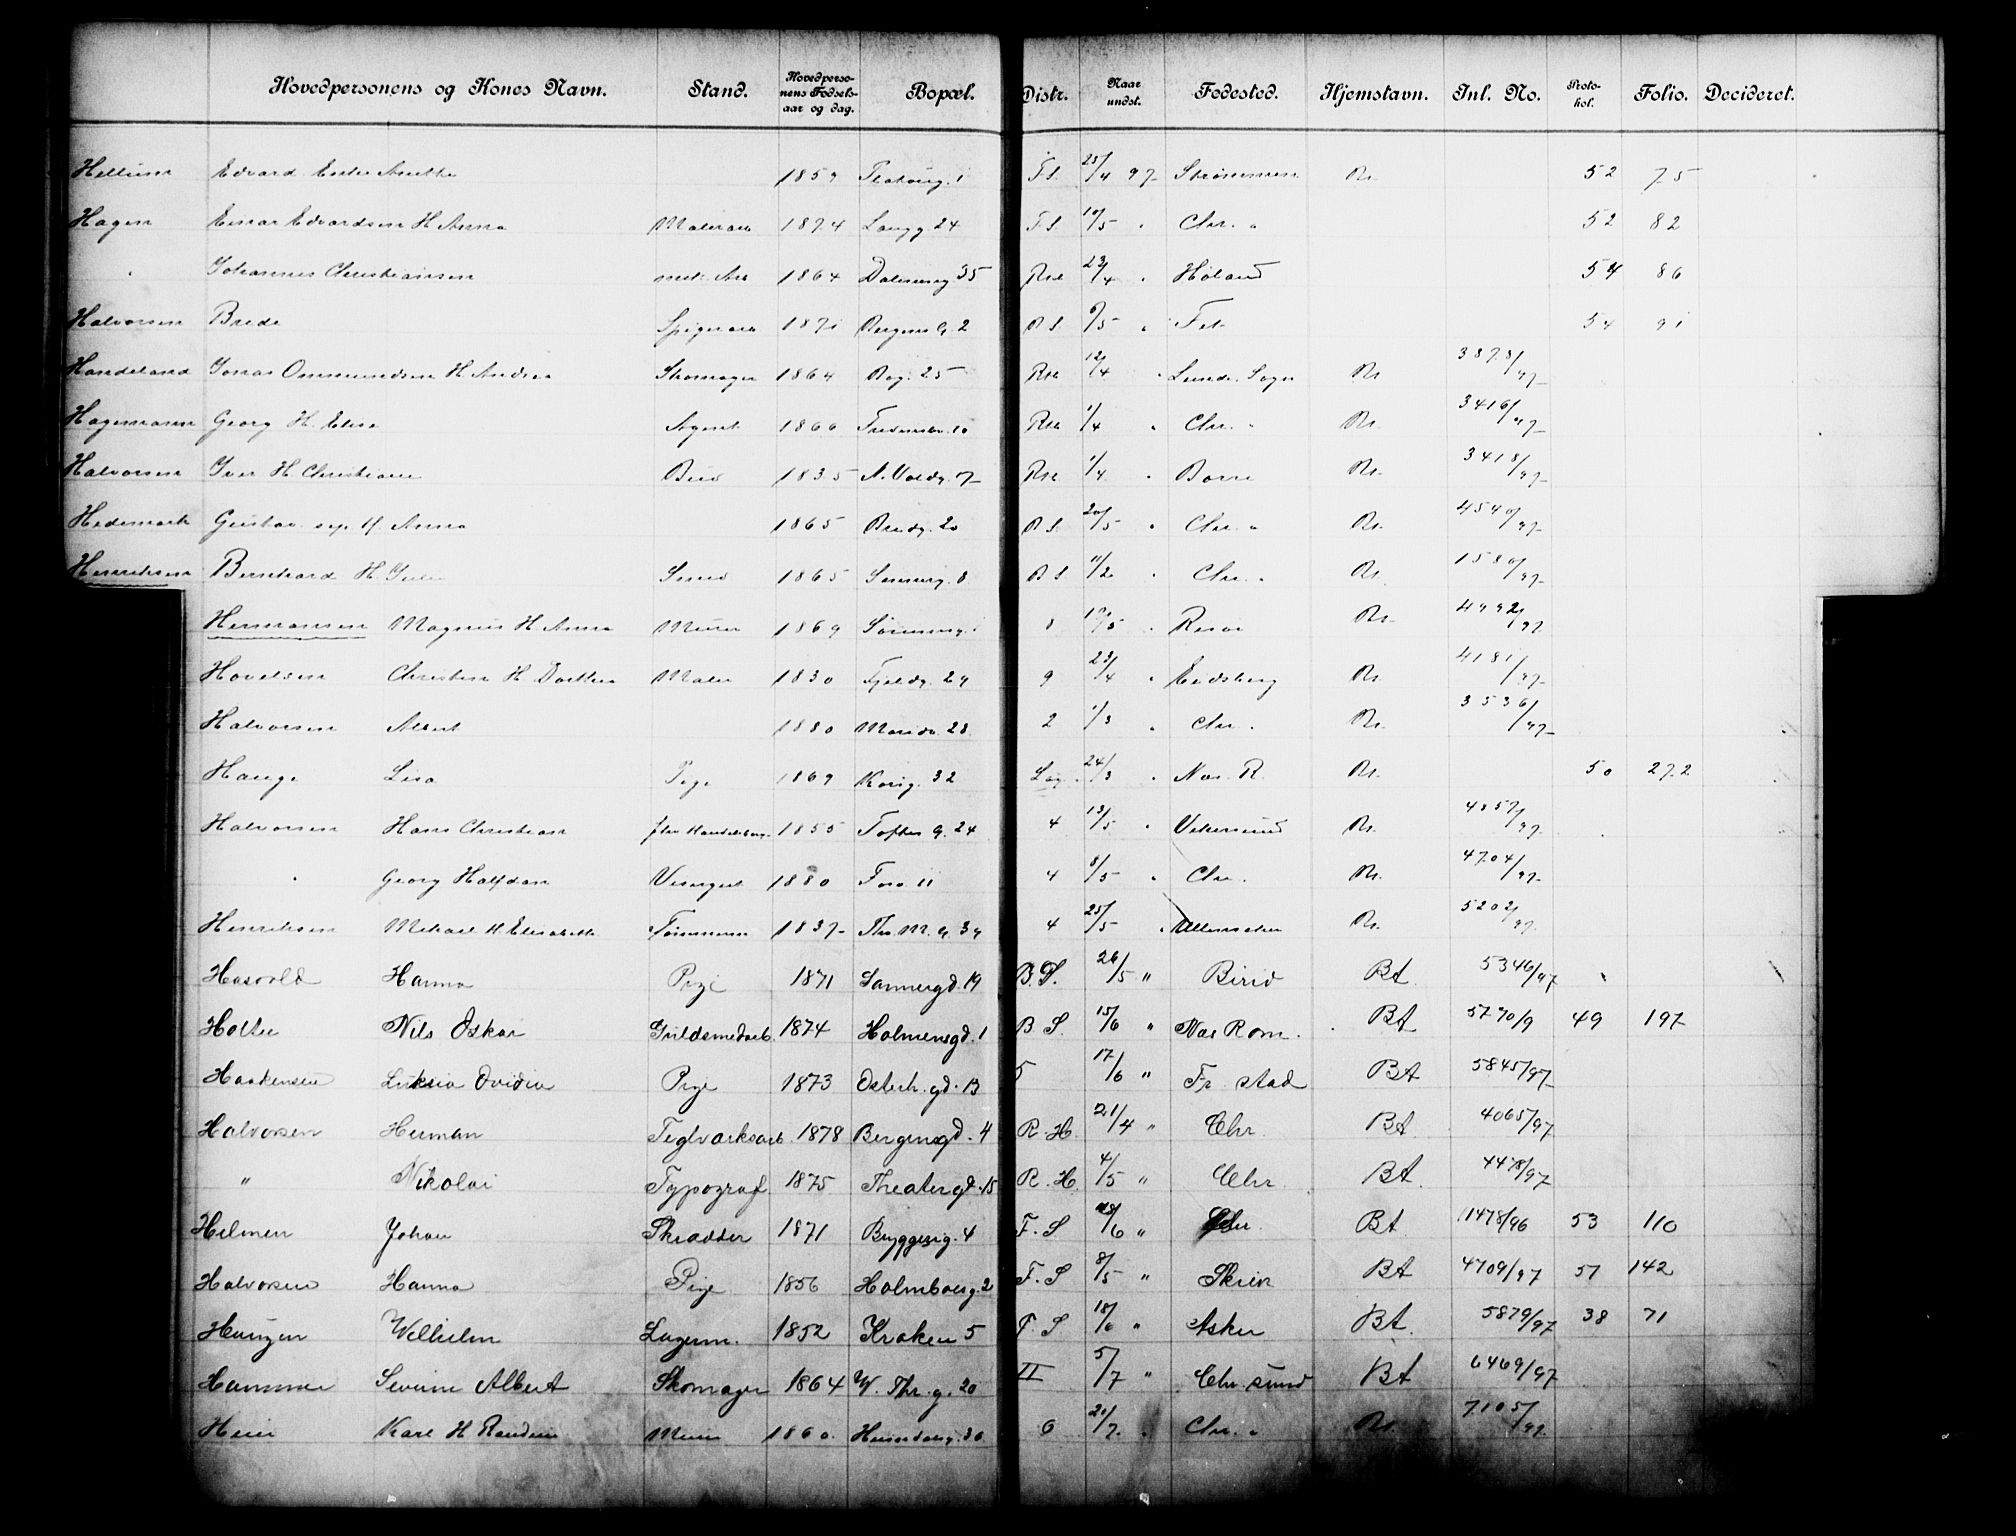 Hovedpersonens og Kones Navn. Stand. Hovedperso-nens Fødsels-aar og dag. Bopæl. Distr. Naar undst. Fødested. Hjemstavn. Inl. No. Proto-kol. Folio. Decideret.
Hellum Edvard Anette 1859 1 F.S. 25/4 97 Strømmen Bt. 52 75
Hagen Einar Edvardsen H Anna Malerarb 1874 Langg 24 F.S. 10/5 " Chr. " 52 82
" Johannes Christiansen mek. Arb 1864 35 RH 23/4 " Høland 54 86
Halvorsen Brede Spigerarb 1871 Bergens G. 2 B S. 6/5 " Fet 54 91
Handeland Jonas Ommundsen H. Andrea Skomager 1864 Bog. 25 RH 12/4 " Lunde. Sogn Bt. 3878/97
Hagemann Georg H. Elise Agent 1866 Fredensbr. 10 RH 1/4 " Chr. " Bt. 3416/97
Halvorsen Iver H Christiane Bud 1835 N. Voldg. 7 RH 1/4 " Borre Bt. 3418/97
Hedemark Gustav sep. H. Anna 1865 Bredg. 20 B S. 20/5 " Chr. " Bt. 4540/97
Henriksen Bernhard H. Julie Smed 1865 Sannerg. 8 B S 11/2 " Chr. " Bt. 1580/97
Hermansen Magnus H Anna Murer 1869 8 " Bt. 4992/97
Hovelsen Christian H Dorthea Maler 1830 Fjeldg. 29 9 23/4 " Eidsberg Bt. 4181/97
Halvorsen Albert 1880 Maridv. 28 2 1/3 " Chr. Bt. 3536/97
Hauge Lisa Pige 1869 Korsg. 32 24/3 " Næs. R. Bt. 50 272
Halvorsen Hans Christian fhv Handelsborg. 1855 Toftes G. 24 4 13/5 " Vikersund Bt. 4857/97
" Georg Halfdan Visergut 1880 Fos. 11 4 8/5 " Chr. Bt. 4704/97
Henriksen Mikael H Elisabeth Tømmerm 1837 Thv. M. G. 39 4 25/5 " Ullensaker Bt. 5202/97
Hasvold Hanna Pige 1871 Sannergd. 19 B.S. 26/5 " Birid BA. 5346/97
Holter Nils Oskar Guldsmedarb. 1874 Holmensgd. 1 B. S. 15/6 " Næs Rom. BA 5770/9 49 197
Haakensen Luksia Ovidia Pige 1873 Osterh. gd. 13 5 17/6 " Fr. stad BA 5845/97
Halvorsen Herman Teglværksarb. 1878 Bergensgd. 4 R. H. 21/4 " Chr. BA 4065/97
" Nikolai Typograf. 1875 Theatergd. 15 R. H. 4/5 " Chr. BA. 4478/97
Helmen Johan Skrædder 1871 Bryggerig. 4 F. S /6 " Chr. BA 11478/96 53 110
Halvorsen Hanna Pige 1856 Holmboesg. 2 F. S 8/5 " Skien BA 4709/97 51 142
Haugen Wilhelm Lagerm. 1852 Kroken 5 F. S 18/6 " Asker BA. 5879/97 38 71
Hammer Severin Albert Skomager 1864 W. Thr. g. 20 II 5/7 " Chr. sund BA 6469/97
Heier Karl H Randine Murer 1860. Heimdalsg. 30 6 21/7 " Chr. " Bt. 7105/97